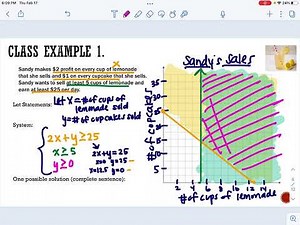 6:09 PM Thu Feb 17
CLASS EXAMPLE 1.
Sandy makes $2 profit on every cup of lemonade
that she sells and $1 on every cupcake that she sells.
Sandy wants to sell at least 5 cups of lemonade and
earn at least $25 per day.
x
y
Let Statements: Let X = # of cups of
lemonade sold
y = # of cupcakes sold
System:
2x + y ≥ 25
x ≥ 5
y ≥ 0
2x + y = 25
y = 25
y = 0
One possible solution (complete sentence):
Sandy's Sales
# of cupcakes
35
30
25
20
15
10
5
2 4 6 8 10 12 14
# of cups of
lemonade